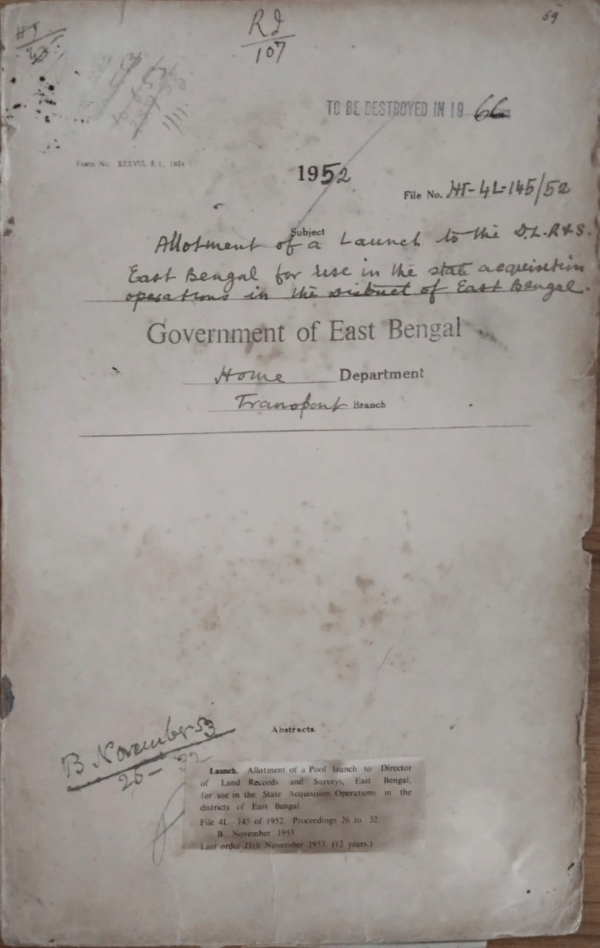 69
HT
RI
107
TO BE DESTROYED IN 19 66
Form No. XXXVIII
1952
File No. HT-4L-145/52
Subject
Allotment of a Launch to the D.L.R&S.
East Bengal for use in the state acquisition
operations in the District of East Bengal.
Government of East Bengal
Home Department
Transport Branch
Abstracts.
B November 53
26-32
Launch. Allotment of a Pool launch to Director
of Land Records and Surveys, East Bengal,
for use in the State Acquisition Operations in the
districts of East Bengal
File 4L-145 of 1952 Proceedings 26 to 32
B November 1953
Last order 21th November 1953 (12 years.)